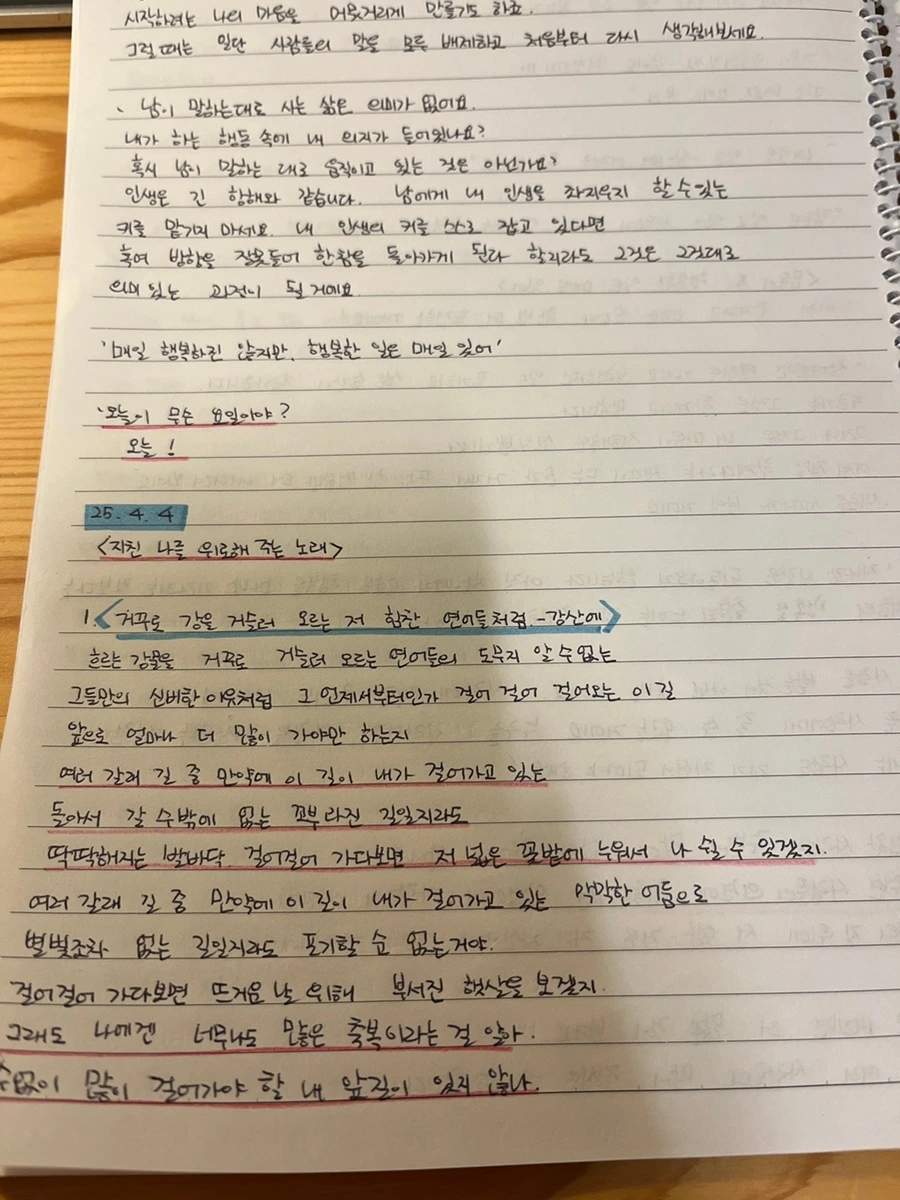 시작하려는 나의 마음을 머뭇거리게 만들기도 하죠.
그럴 때는 일단 사람들의 말을 모두 배제하고 처음부터 다시 생각해보세요.
、 남이 말하는대로 사는 삶은 의미가 없어요.
내가 하는 행동 속에 내 의지가 들어있나요?
혹시 남이 말하는 대로 움직이고 있는 것은 아닌가요?
인생은 긴 항해와 같습니다. 남에게 내 인생을 좌지우지 할 수 있는
키를 맡기지 마세요. 내 인생의 키를 스스로 잡고 있다면
혹여 방향을 잘못들어 한참을 돌아가게 된다 할지라도 그것은 그것대로
의미 있는 과정이 될 거에요
'매일 행복하진 않지만, 행복한 일은 매일 있어'
'오늘이 무슨 요일이야?
오늘!
25. 4. 4
<지친 나를 위로해 주는 노래>
1. <거꾸로 강을 거슬러 오르는 저 힘찬 연어들처럼 - 강산에>
흐르는 강물을 거꾸로 거슬러 오르는 연어들의 도무지 알 수 없는
그들만의 신비한 이유처럼 그 언제서부터인가 걸어 걸어 걸어오는 이 길
앞으로 얼마나 더 많이 가야만 하는지
여러 갈래 길 중 만약에 이 길이 내가 걸어가고 있는
돌아서 갈 수밖에 없는 꼬부라진 길일지라도
딱딱해지는 발바닥 걸어걸어 가다보면 저 넓은 꽃밭에 누워서 나 쉴 수 있겠지.
여러 갈래 길 중 만약에 이 길이 내가 걸어가고 있는 막막한 어둠으로
별빛조차 없는 길일지라도 포기할 순 없는거야.
걸어걸어 가다보면 뜨거운 날 위해 부서진 햇살을 보겠지.
그래도 나에겐 너무나도 많은 축복이라는 걸 알아
수없이 많이 걸어가야 할 내 앞길이 있지 않나.